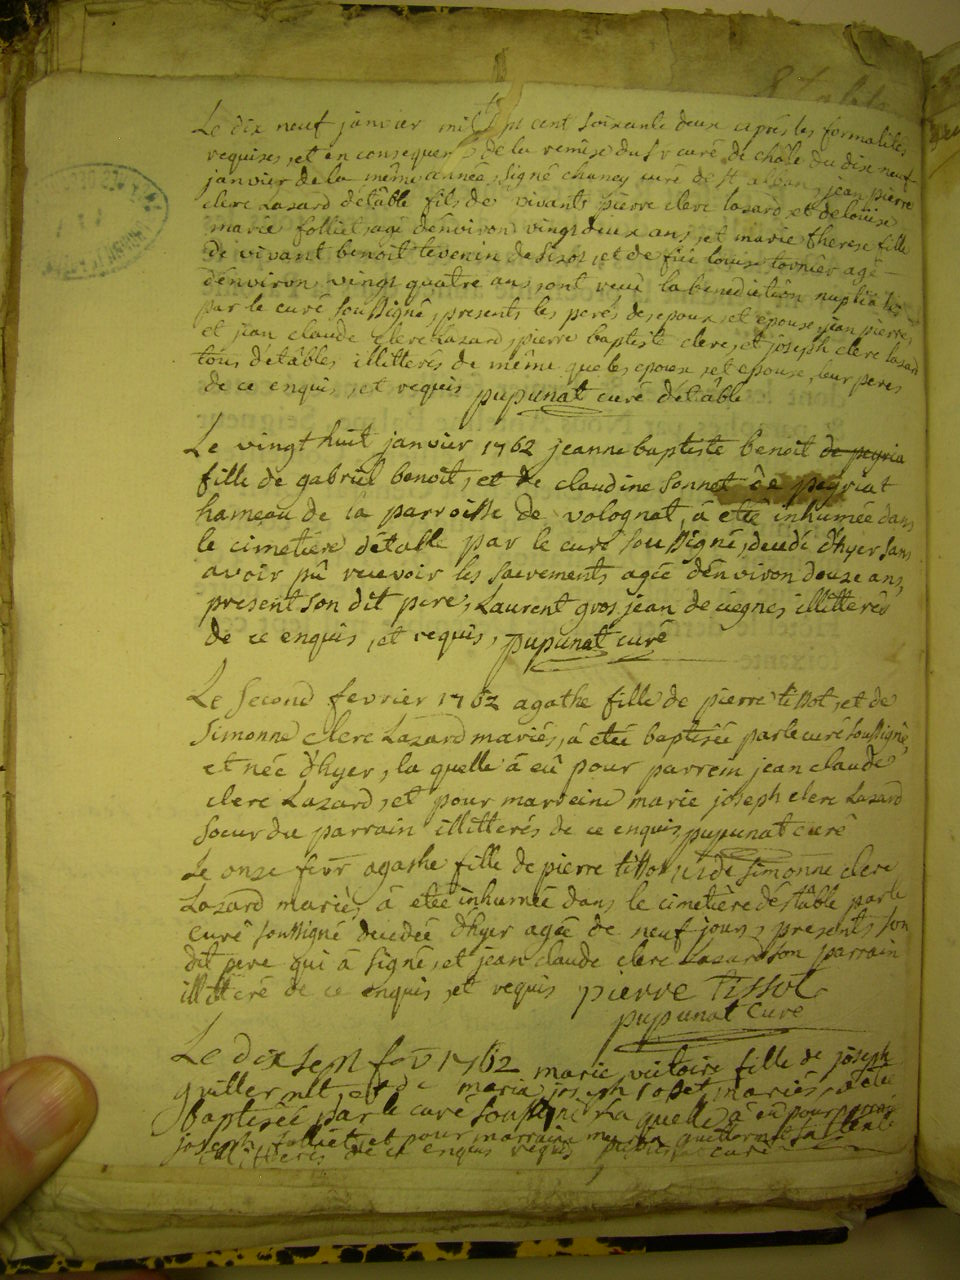 Le dix neuf janvier mil sept cent soixante deux après les formalités
requises, et en consequence de la remise du sr curé de châle du dix neuf
janvier de la même année, signé chaney curé de st alban, jean pierre
clerc Lazard d'étâble fils de vivants pierre clerc lazard et de loüise
marie folliet, agé d'environ vingt deux ans, et marie therese fille
de vivant benoit tevenin de et de füe louise tornier agé
d'environ vingt quatre ans, ont reçu la benediction nuptiale
par le curé soussigné, presents les peres des epoux, et epouse, jean pierre,
et jean claude clerc Lazard, pierre baptiste clerc, et joseph clerc lazard
tous d'étâbles, illitterés de même que les epoux, et epouse, leur peres
de ce enquis, et requis pupunat curé d'étâble
Le vingt huit janvier 1762 jeanne baptiste benoit de peyria
fille de gabriel benoit, et de claudine sonnet de peyriat
hameau de la parroisse de volognat, à eté inhumée dans
le cimetiere d'étable par le curé soussigné, decedé d'hyer sans
avoir pû recevoir les sacrements agée d'environ douze ans,
present son dit pere, Laurent gros jean de ciegnes illitterés
de ce enquis, et requis, pupunat curé
Le second fevrier 1762 agathe fille de pierre tissot, et de
Simonne clerc Lazard mariés, à etée baptisée par le curé soussigné,
et née d'hyer, la quelle à eû pour parrein jean claude
clerc Lazard, et pour marreine marie joseph clerc Lazard
soeur du parrain illitterés de ce enquis, pupunat curé
Le onze fevr agathe fille de pierre tissot, et de simonne clerc
Lazard mariés, à etée inhumée dans le cimetière d'éstâble par le
curé soussigné decedée d'hyer agée de neuf jours, presents son
dit pere qui à signé, et jean claude clerc Lazard son parrain
illitteré de ce enquis, et requis pierre tissot
pupunat curé
Le dix sept fev 1762 marie victoire fille de joseph
guillermet, et de marie joseph mariés, a eté
baptisée par le curé soussigné La quelle à eû pour parrain
joseph folliet, et pour marraine guillermet sa tante
illitterés de ce enquis requis pupunat curé